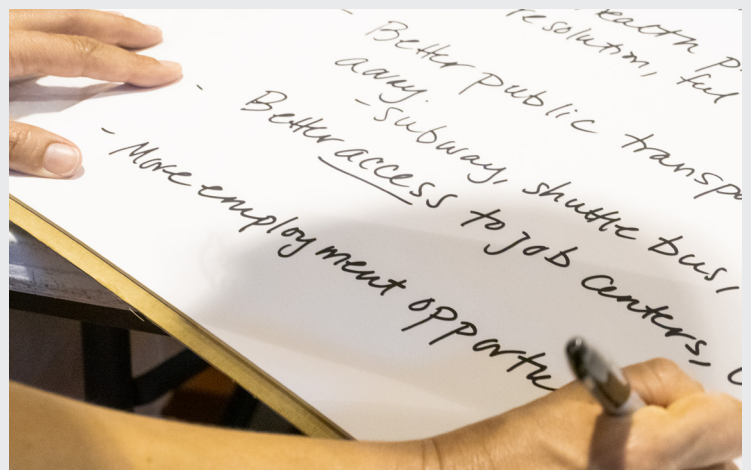 health p
resolution, ful
away.
- Better public transpo
- subway, shuttle bus,
- Better access to job centers,
- More employment opportu